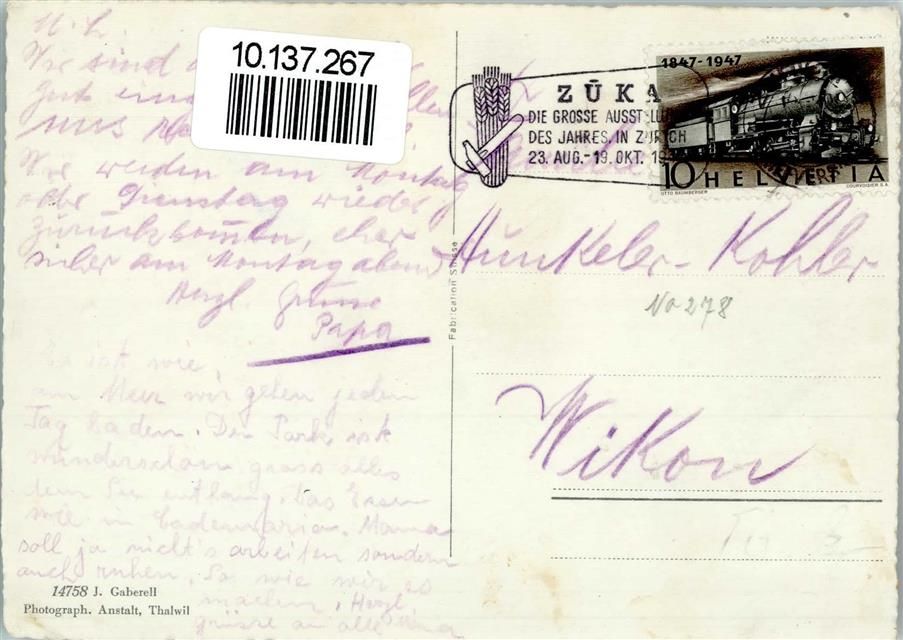 10.137.267
M. L.
Wir sind
gut
uns
Wir werden am Montag
oder Dienstag wieder
zurückkommen, eher
sicher am Montag abend
Herzl. Grüsse
Papa
Es ist wie
am Meer wir gehen jeden
Tag baden. Der Park ist
wunderschön gross alles
dem See entlang. Das Essen
wie in Cadenvaria. Mama
soll ja nichts arbeiten sondern
auch ruhen. So wie wir es
machen. Herzl.
Grüsse an alle
14758 J. Gaberell
Photograph. Anstalt, Thalwil
Fabrication Suisse
ZÜKA
DIE GROSSE AUSSTELLU
DES JAHRES IN ZÜRICH
23. AUG.-19. OKT. 19
1847-1947
10 HELVETIA
OTTO BAUMBERGER
COURVOISIER S.A.
Hunkeler-Kohler
No 278
Wikon